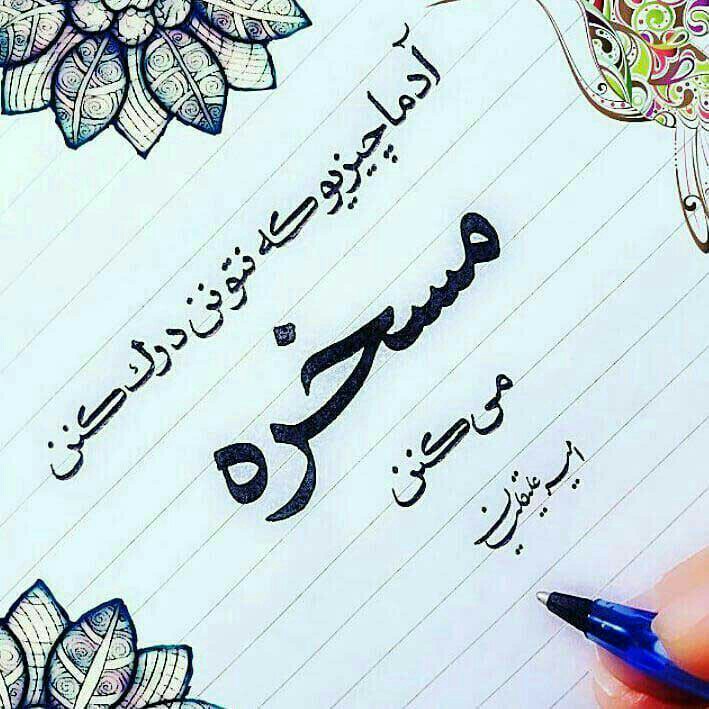 آدما چیزیو که نتونن درك کنن
مسخره
می کنن
امیر علیقلیان